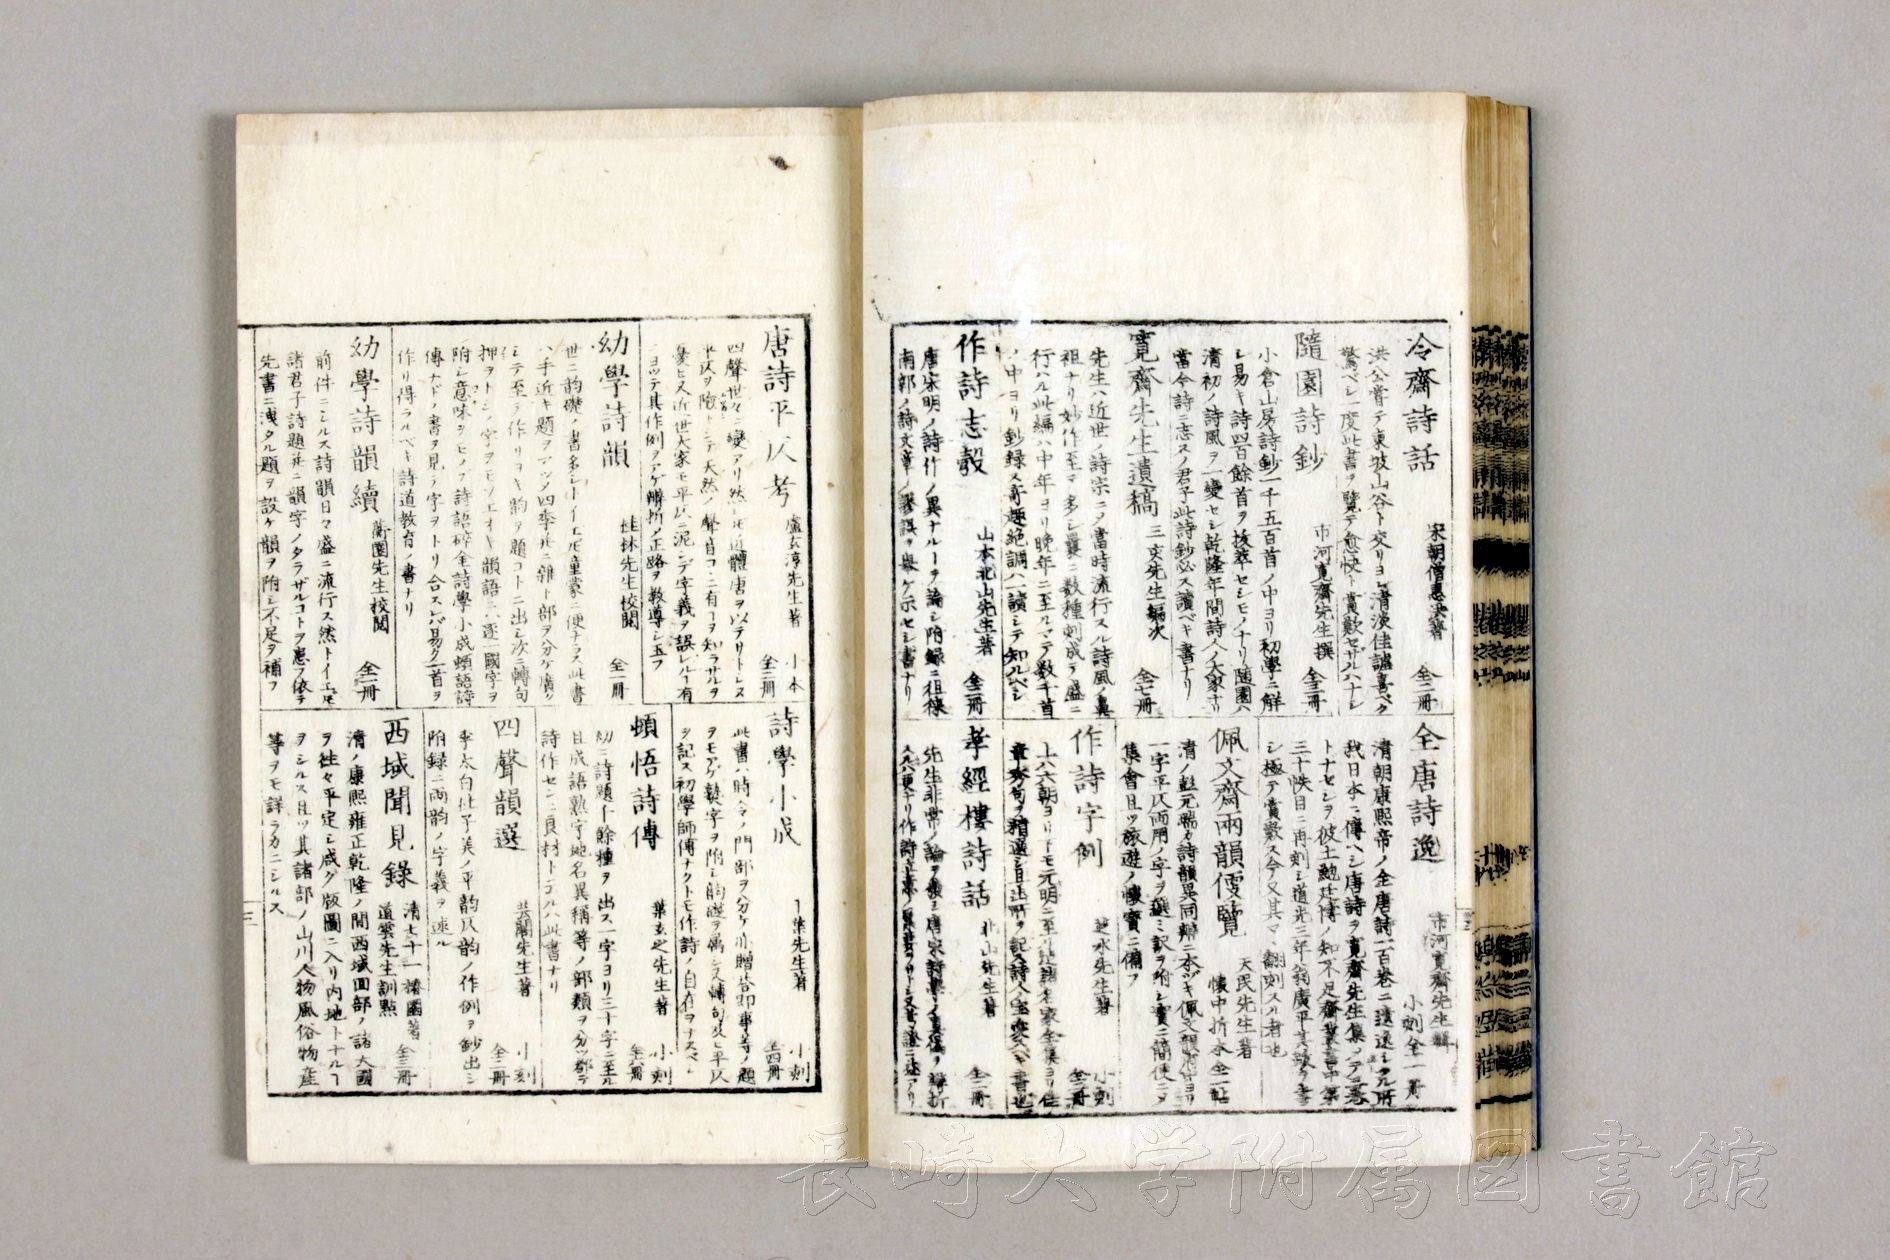 冷齋詩話
宋朝僧惠洪著
全二冊
洪公嘗テ東坡山谷ト交リヨシ清淡佳謔喜ベク
驚ベシ一度此書ヲ覽テ愈快ト賞歎セザルハナシ
隨園詩鈔
市河寛齋先生撰
全三冊
小倉山房詩鈔一千五百首ノ中ヨリ初學ニ解
シ易キ詩四百餘首ヲ抜萃セシモノナリ隨園ハ
清初ノ詩風ヲ一變セシ乾隆年間詩人ノ大家ナリ
當今詩ニ志スノ君子此詩鈔必ス讀ベキ書ナリ
寛齋先生遺稿
三亥先生編次
全七冊
先生ハ近世ノ詩宗ニノ當時流行スル詩風ノ鼻
祖ナリ妙作至テ多シ曩ニ数種刻成テ盛ニ
行ハル此編ハ中年ヨリ晩年ニ至ルマテノ数千首
ノ中ヨリ鈔録ス奇趣絶調ハ一讀シテ知ルベシ
作詩志彀
山本北山先生著
全二冊
唐宋明ノ詩行ノ異ナルヿヲ論シ附録ニ徂徠
南郭ノ詩文章ノ謬誤ヲ擧ケ示セシ書ナリ
全唐詩逸
市河寛齋先生輯
小刻全一冊
清朝康熙帝ノ全唐詩一百巻ニ遺逸シタル所
我日本ニ傳ヘシ唐詩ヲ寛齋先生集ノテ三巻
トナセシヲ彼土鮑廷博ノ知不足齋叢書中第
三十帙目ニ再刻シ道光三年翁廣平其跋ヲ書
シ極テ賞歎ス今又其マヽ翻刻スル者也
佩文齋兩韻便覽
天民先生著
懐中折本全一帖
清ノ彭元瑞カ詩韻異同辯ニ本ツキ佩文韻府ヨリ
一字平仄兩用ノ字ヲ選ミ訳ヲ附シ實ニ簡便ニノ
集會且ツ旅遊ノ懐寶ニ備フ
作詩字例
芝水先生著
小刻
全二冊
上ハ六朝ヨリ下モ元明ニ至リ諸名家全集ヨリ佳
章秀句ヲ精選シ且出所ヲ記ス詩人宝奕スベキ書也
孝經樓詩話
北山先生著
全二冊
唐詩平仄考
盧玄淳先生著
小本
全三冊
四聲世々ニ變アリ然レモ近體唐ヲ以テリトレヌ
憂ヒス近世大家モ平仄ニ泥シデ字義ヲ誤ルヿ有
ニヨツテ其作例ヲアゲ勝折ノ正路ヲ教導シ玉フ
幼學詩韻
桂林先生校閲
全一冊
世ニ韵礎ノ書多シトイエモ童蒙ニ便ナラス此書
ハ手近キ題ヲアツメ四季并ニ雜ト部ヲ分ケ廣ク
附シ意味ヲモノブ詩語砕金詩學小成頓語詩
傳ナド書ヲ見テ字ヲトリ合スレバ易ク一首ヲ
作リ得ラルベキ詩道教育ノ書ナリ
幼學詩韻續
蘭園先生校閲
全一冊
前件ニシルス詩韻日々盛ニ流行ス然トイエモ
諸君子詩題并ニ韻字ノタラザルコトヲ患フ依テ
先書ニ洩タル題ヲ設ケ韻ヲ附シ不足ヲ補フ
詩學小成
先生著
小刻
全四冊
此書ハ時令ノ門部ヲ分ケ訓贈答即事等ノ題
ヲモアゲ襲字ヲ附シ韵礎ヲ属シ又轉句及ヒ平仄
ヲ記ス初學師傳ナクトモ作詩ノ自在ヲナスベシ
頓悟詩傳
葉玄之先生著
小刻
全一冊
幼ニ詩題千餘種ヲ出ス一字ヨリ三十字ニ至ル
且成語熟字地名異稱等ノ部類ヲ分ツ郡テ
詩作センニ良材トテルハ此書ナリ
四聲韻選
芸閣先生著
小刻
全二冊
李太白杜子美ノ平韵仄韵ノ作例ヲ鈔出シ
附録ニ両韵ノ字義ヲ述ル
西域聞見錄
清七十一椿園著
道雲先生訓點
全三冊
清ノ康熙雍正乾隆ノ間西域回部ノ諸大國
ヲ往々平定シ咸ク版圖ニ入リ内地トナルヿ
ヲシルス且ツ其諸部ノ山川人物風俗物産
等ヲモ詳ラカニシルス
長崎大学附属図書館